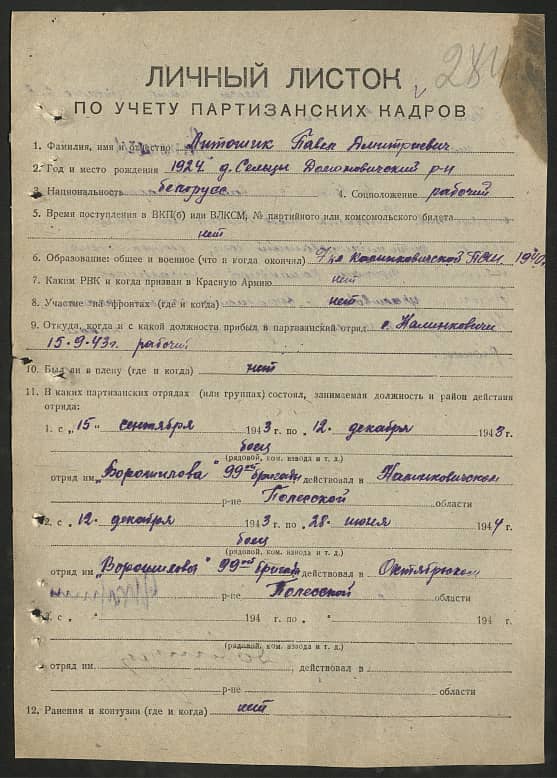 284
ЛИЧНЫЙ ЛИСТОК
ПО УЧЕТУ ПАРТИЗАНСКИХ КАДРОВ
1. Фамилия, имя и отчество: Литошик Павел Дмитриевич
2. Год и место рождения 1924 д. Сельцы Домановичский р-н
3. Национальность белорус 4. Соцположение рабочий
5. Время поступления в ВКП(б) или ВЛКСМ, № партийного или комсомольского билета
нет
6. Образование: общее и военное (что и когда окончил) 7 кл Калинковичской 1940г.
7. Каким РВК и когда призван в Красную Армию нет
8. Участие на фронтах (где и когда) нет
9. Откуда, когда и с какой должности прибыл в партизанский отряд с. Калинковичи
15.9.43г. рабочий
10. Был ли в плену (где и когда) нет
11. В каких партизанских отрядах (или группах) состоял, занимаемая должность и район действия
отряда:
1. с „15" сентября 1943 г. по „12. декабря 1943 г.
боец
(рядовой, ком. взвода и т. д.)
отряд им „Ворошилова" 99ой бригады действовал в Калинковичском
р-не Полесской области
2. с „12. декабря 1943 г. по „28. июня 1944 г.
боец
(рядовой, ком. взвода и т. д.)
отряд им „Ворошилова" 99ой бригады действовал в Октябрьском
р-не Полесской области
3. с „ " 194 г. по „ " 194 г.
(рядовой, ком. взвода и т. д.)
отряд им. действовал в
р-не области
12. Ранения и контузии (где и когда) нет